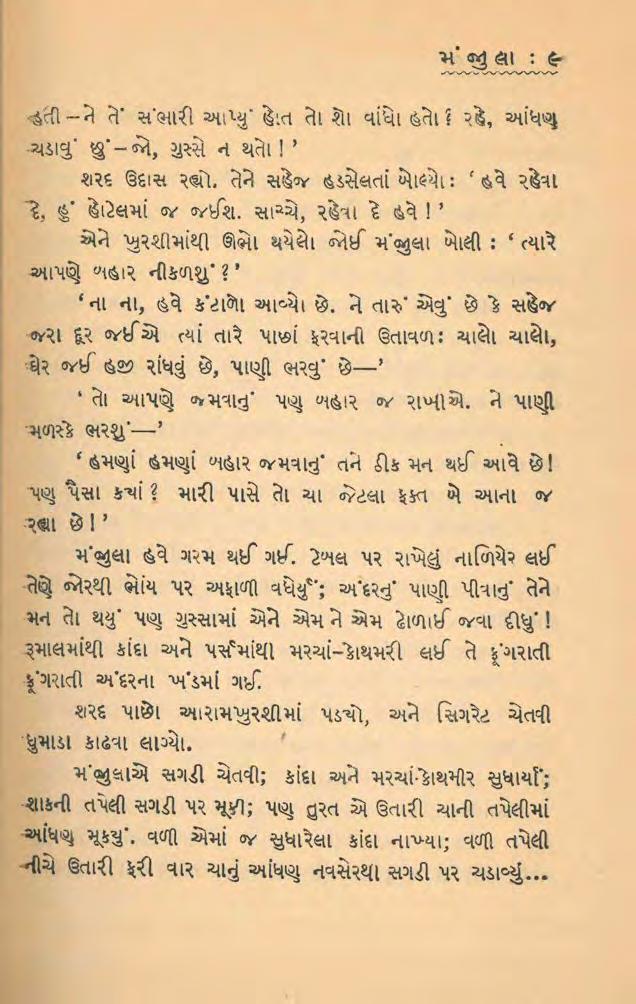 મંજુલા : ૯
હતી – ને તેં સંભારી આપ્યું હોત તો શો વાંધો હતો ? રહે, આંધણ
ચડાવું છું – જો, ગુસ્સે ન થતો ! ’
શરદ ઉદાસ રહ્યો. તેને સહેજ હડસેલતાં બોલ્યો : ‘ હવે રહેવા
દે, હું હોટેલમાં જ જઈશ. સાચ્ચે, રહેવા દે હવે ! ’
એને ખુરશીમાંથી ઊભો થયેલો જોઈ મંજુલા બોલી : ‘ ત્યારે
આપણે બહાર નીકળશું ? ’
‘ ના ના, હવે કંટાળો આવ્યો છે. ને તારું એવું છે કે સહેજ
જરા દૂર જઈએ ત્યાં તારે પાછાં ફરવાની ઉતાવળ : ચાલો ચાલો,
ઘેર જઈ હજી રાંધવું છે, પાણી ભરવું છે— ’
‘ તો આપણે જમવાનું પણ બહાર જ રાખીએ. ને પાણી
મળસ્કે ભરશું— ’
‘ હમણાં હમણાં બહાર જમવાનું તને ઠીક મન થઈ આવે છે !
પણ પૈસા ક્યાં ? મારી પાસે તો ચા જેટલા ફક્ત બે આના જ
રહ્યા છે ! ’
મંજુલા હવે ગરમ થઈ ગઈ. ટેબલ પર રાખેલું નાળિયેર લઈ
તેણે જોરથી ભોંય પર અફાળી વધેર્યું; અંદરનું પાણી પીવાનું તેને
મન તો થયું પણ ગુસ્સામાં એને એમ ને એમ ઢોળાઈ જવા દીધું !
રૂમાલમાંથી કાંદા અને પર્સમાંથી મરચાં-કોથમરી લઈ તે ફૂંગરાતી
ફૂંગરાતી અંદરના ખંડમાં ગઈ.
શરદ પાછો આરામખુરશીમાં પડ્યો, અને સિગરેટ ચેતવી
ધુમાડા કાઢવા લાગ્યો.
મંજુલાએ સગડી ચેતવી; કાંદા અને મરચાં-કોથમીર સુધાર્યાં;
શાકની તપેલી સગડી પર મૂકી; પણ તુરત એ ઉતારી ચાની તપેલીમાં
આંધણ મૂક્યું. વળી એમાં જ સુધારેલા કાંદા નાખ્યા; વળી તપેલી
નીચે ઉતારી ફરી વાર ચાનું આંધણ નવસેરથી સગડી પર ચડાવ્યું...